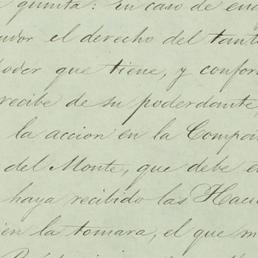 quinta: En caso de ena
favor el derecho del tant
poder que tiene, y confor
recibe de su poderdante,
la accion en la Compañ
del Monte, que debe e
haya recibido las Haci
en la tomara, el que m